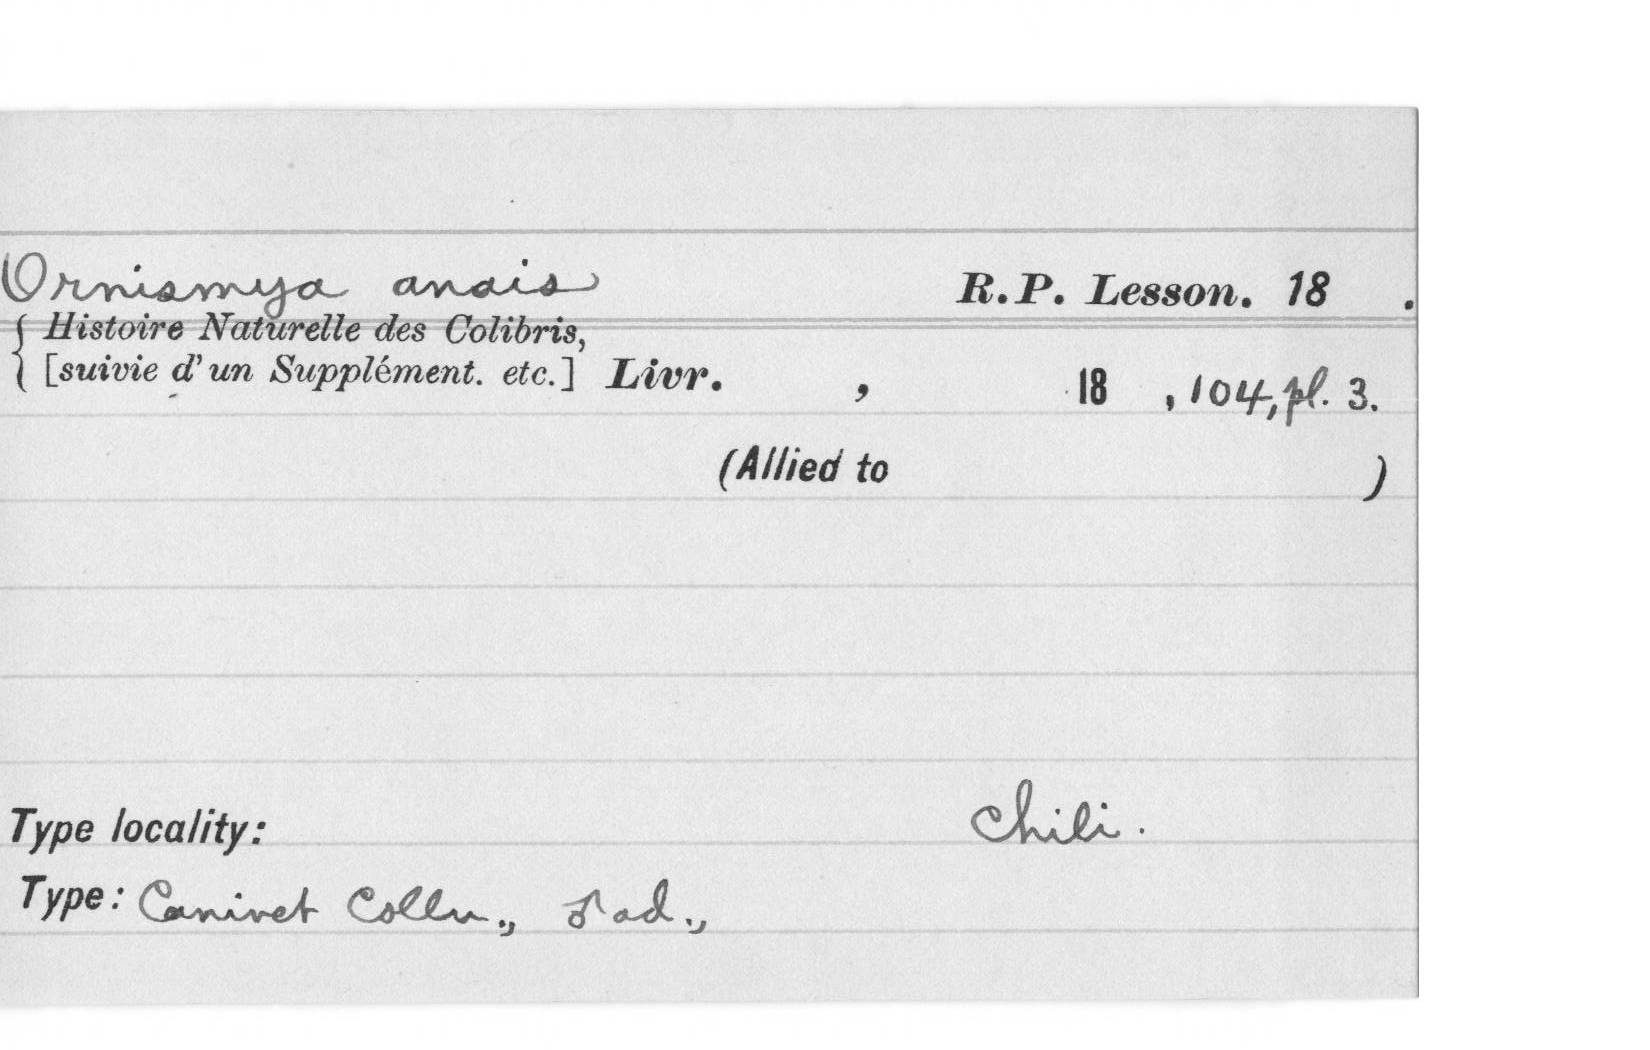 Ornismya anais R.P. Lesson. 18 .
Histoire Naturelle des Colibris,
[suivie d'un Supplément. etc.] Livr. , 18 , 104, pl. 3.
(Allied to )
Type locality: Chili.
Type: Canivet Colln., ♂ ad.,